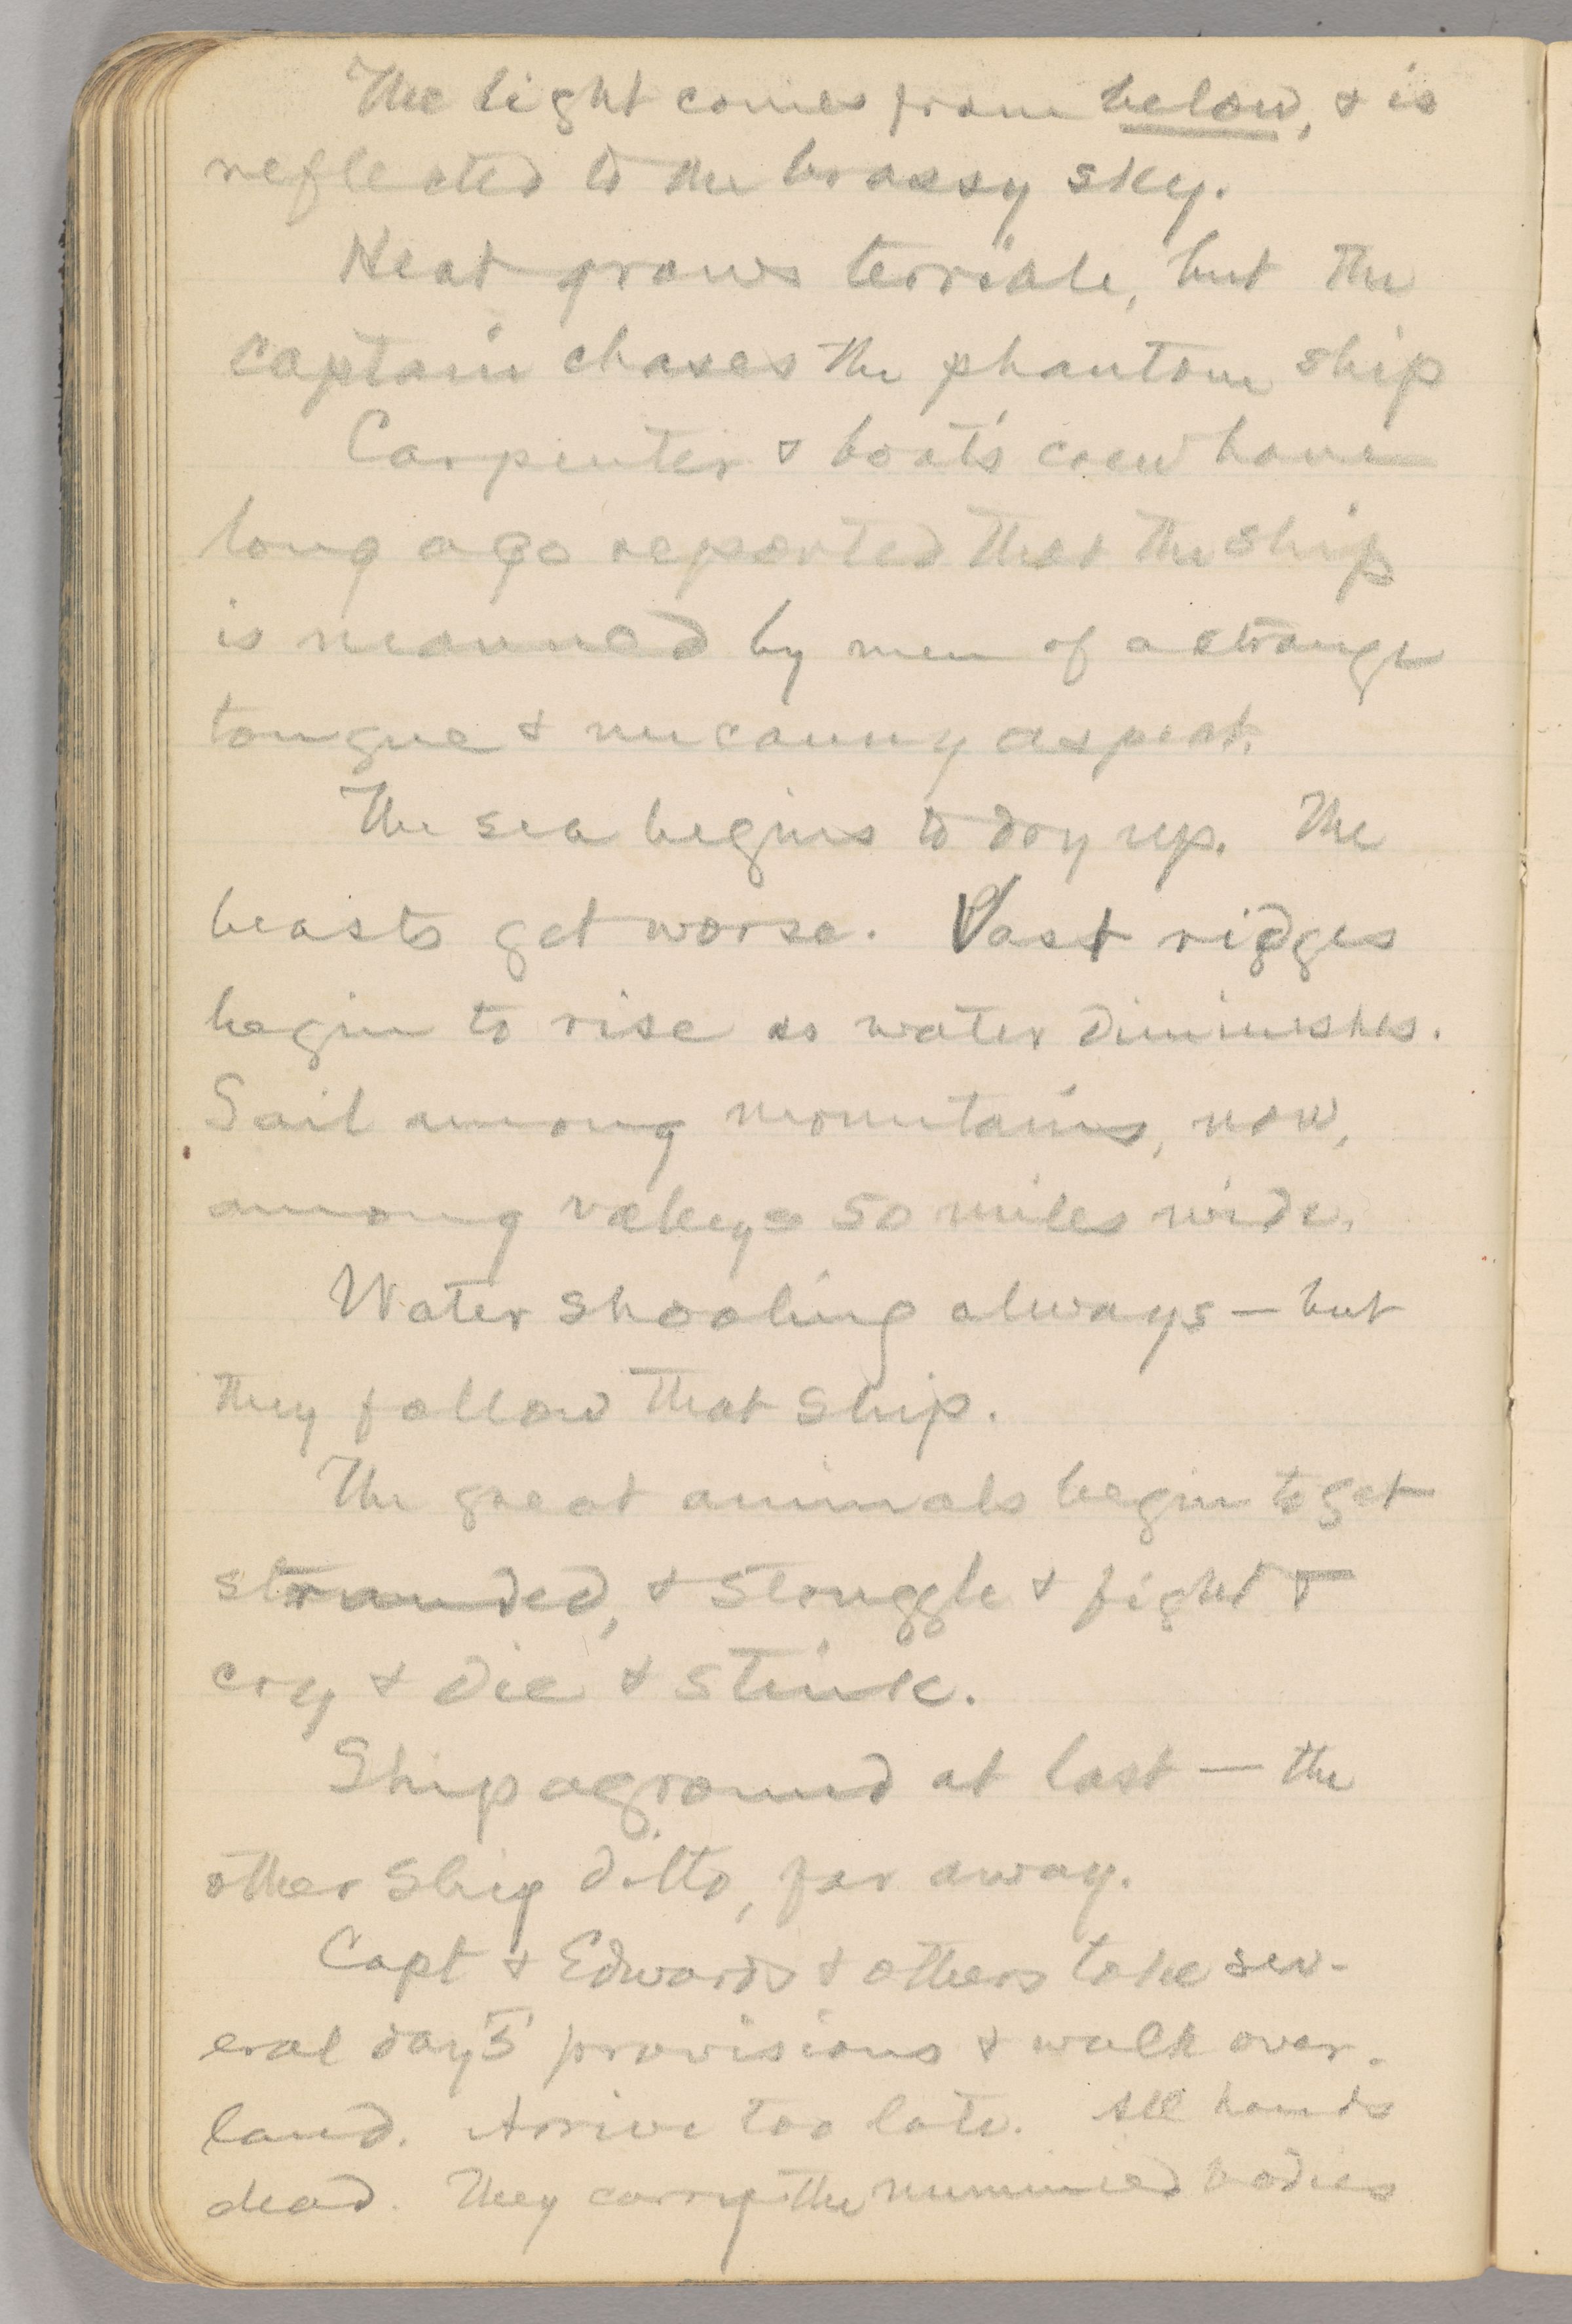 The light comes from below, & is
reflected to the brassy sky.
Heat grows terrible, but the
captain chases the phantom ship
Carpenter & boat's crew have
long ago reported that the ship
is manned by men of a strange
tongue & uncanny aspect.
The sea begins to dry up. The
beasts get worse. Vast ridges
begin to rise as water diminishes.
Sail among mountains, now,
among valleys 50 miles wide.
Water shoaling always — but
they follow that ship.
The great animals begin to get
stranded, & struggle & fight &
cry & die & stink.
Ship aground at last — the
other ship ditto, far away.
Capt & Edwards & others take sev-
eral day's provisions & walk over-
land. Arrive too late. All hands
dead. They carry the mummied bodies